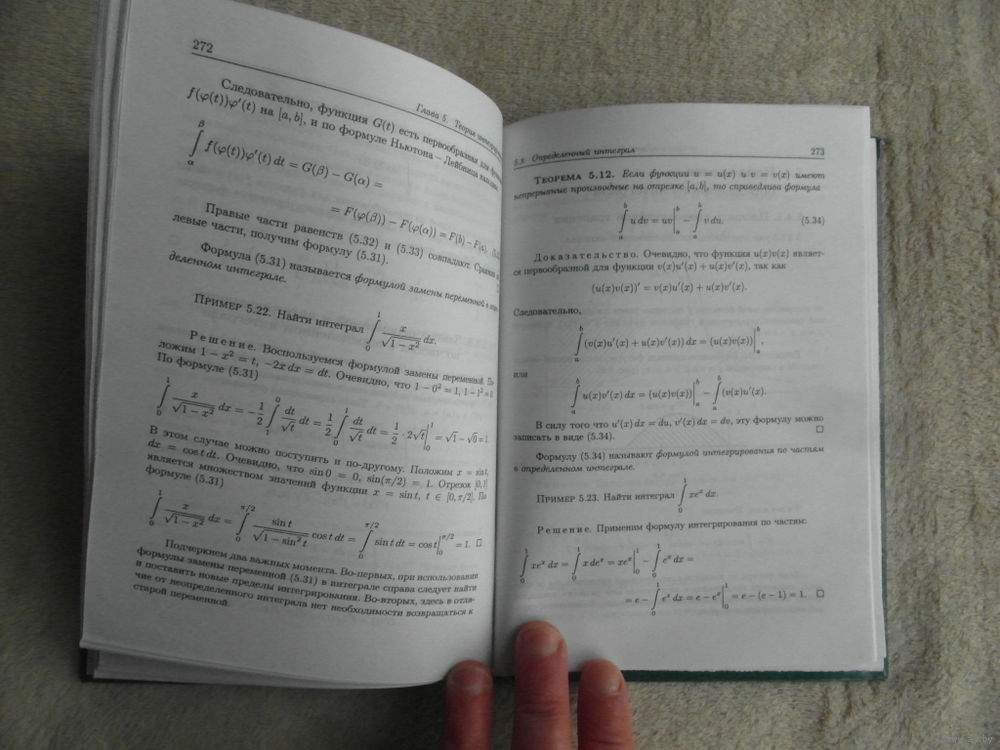 272
Глава 5. Теория
Следовательно, функция G(t) есть первообразная для
f(φ(t))φ′(t) на [a, b], и по формуле Ньютона – Лейбница
∫_α^β f(φ(t))φ′(t) dt = G(β) − G(α) =
= F(φ(β)) − F(φ(α)) = F(b) − F(a).
Правые части равенств (5.32) и (5.33) совпадают.
левые части, получим формулу (5.31).
Формула (5.31) называется формулой замены переменной в
деленном интеграле.
ПРИМЕР 5.22. Найти интеграл ∫_0^1 x/√(1−x²) dx.
Решение. Воспользуемся формулой замены переменной.
ложим 1 − x² = t, −2x dx = dt. Очевидно, что 1−0² = 1, 1−1² = 0.
По формуле (5.31)
∫_0^1 x/√(1−x²) dx = −1/2 ∫_1^0 dt/√t dt = 1/2 ∫_0^1 dt/√t dt = 1/2 · 2√t|_0^1 = √1 − √0 = 1.
В этом случае можно поступить и по-другому. Положим x = sin t,
dx = cos t dt. Очевидно, что sin 0 = 0, sin(π/2) = 1. Отрезок [0, 1]
является множеством значений функции x = sin t, t ∈ [0, π/2]. По
формуле (5.31)
∫_0^1 x/√(1−x²) dx = ∫_0^{π/2} sin t/√(1−sin² t) cos t dt = ∫_0^{π/2} sin t dt = cos t|_0^{π/2} = 1. □
Подчеркнем два важных момента. Во-первых, при использовании
формулы замены переменной (5.31) в интеграле справа следует найти
и поставить новые пределы интегрирования. Во-вторых, здесь в отли-
чие от неопределенного интеграла нет необходимости возвращаться к
старой переменной.
5.3. Определенный интеграл 273
ТЕОРЕМА 5.12. Если функции u = u(x) и v = v(x) имеют
непрерывные производные на отрезке [a, b], то справедлива формула
∫_a^b u dv = uv|_a^b − ∫_a^b v du. (5.34)
Доказательство. Очевидно, что функция u(x)v(x) являет-
ся первообразной для функции v(x)u′(x) + u(x)v′(x), так как
(u(x)v(x))′ = v(x)u′(x) + u(x)v′(x).
Следовательно,
∫_a^b (v(x)u′(x) + u(x)v′(x)) dx = (u(x)v(x))|_a^b,
или
∫_a^b u(x)v′(x) dx = (u(x)v(x))|_a^b − ∫_a^b (v(x)u′(x).
В силу того что u′(x) dx = du, v′(x) dx = dv, эту формулу можно
записать в виде (5.34). □
Формулу (5.34) называют формулой интегрирования по частям
в определенном интеграле.
ПРИМЕР 5.23. Найти интеграл ∫_0^1 xe^x dx.
Решение. Применим формулу интегрирования по частям:
∫_0^1 xe^x dx = ∫_0^1 x de^x = xe^x|_0^1 − ∫_0^1 e^x dx =
= e − ∫_0^1 e^x dx = e − e^x|_0^1 = e − (e − 1) = 1. □